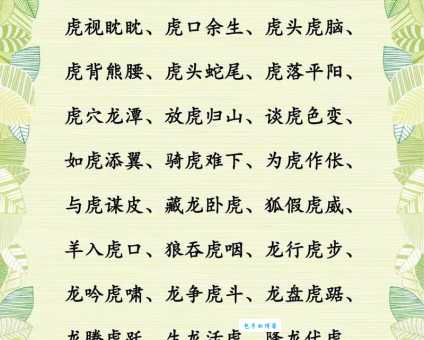 虎视眈眈、虎口余生、虎头虎脑、
虎背熊腰、虎头蛇尾、虎落平阳、
虎穴龙潭、放虎归山、谈虎色变、
如虎添翼、骑虎难下、为虎作伥、
与虎谋皮、藏龙卧虎、狐假虎威、
羊入虎口、狼吞虎咽、龙行虎步、
龙吟虎啸、龙争虎斗、龙盘虎踞、
龙腾虎跃、生龙活虎、降龙伏虎、